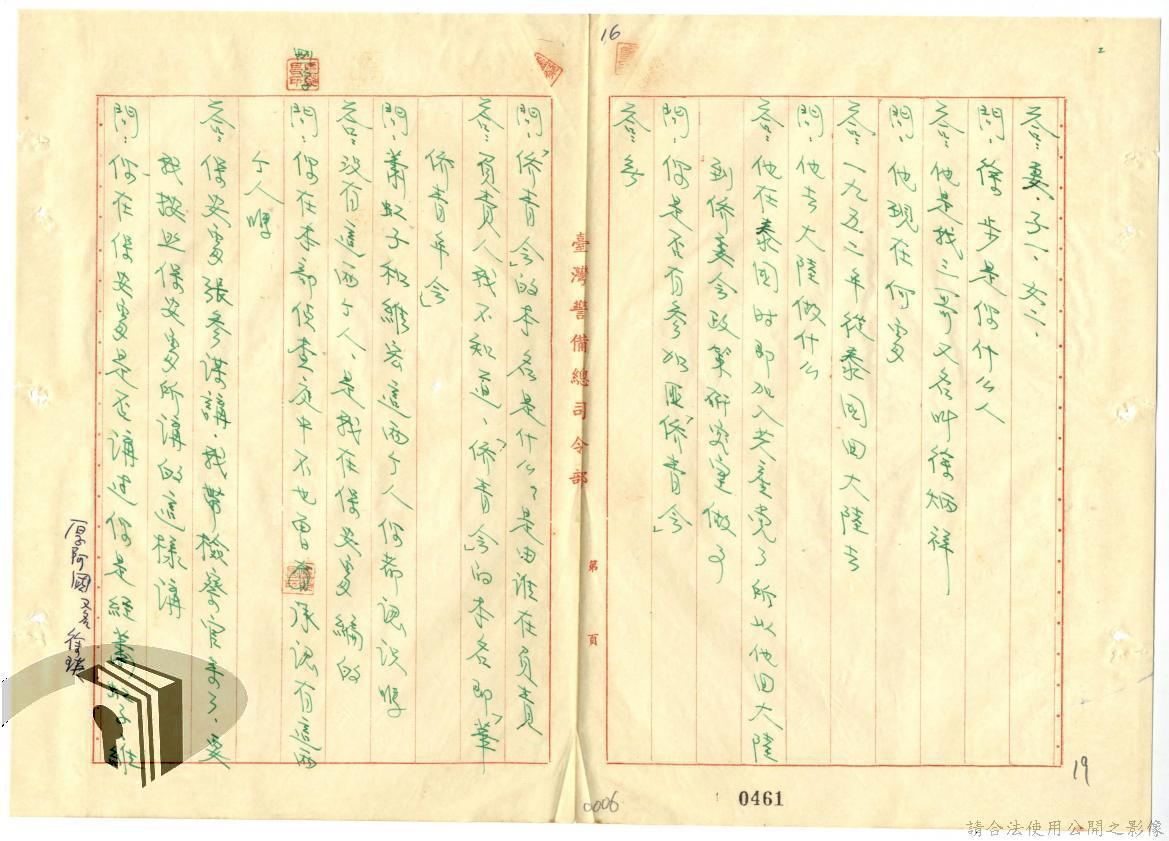 16
2
答：妻、子一、女二、
問：徐步是你什么人
答：他是我三哥又名叫徐炳祥
問：他現在何處
答：一九五二年從泰国回大陸去
問：他去大陸做什么
答：他在泰国时即加入共產党了所以他回大陸
到侨委会政策研究室做事
問：你是否有參加匪「侨青会」
答：參
臺灣警備總司令部
第 頁
問：「侨青会」的本名是什么？是由谁在負責
答：負責人我不知道、「侨青会」的本名即「華
侨青年会」
問：蕭虹子和維宏這两个人你都認识嗎
答：没有這两个人、是我在保安處編的
問：你在本部侦查庭中不也曾承認有這两
个人嗎
答：保安處張參謀講、我帶檢察官来了、要
我按照保安處所講的這樣講
問：你在保安處是否講过你是經蕭虹子維
厚阿國 又名 徐瑛
0006
0461
19
請合法使用公開之影像